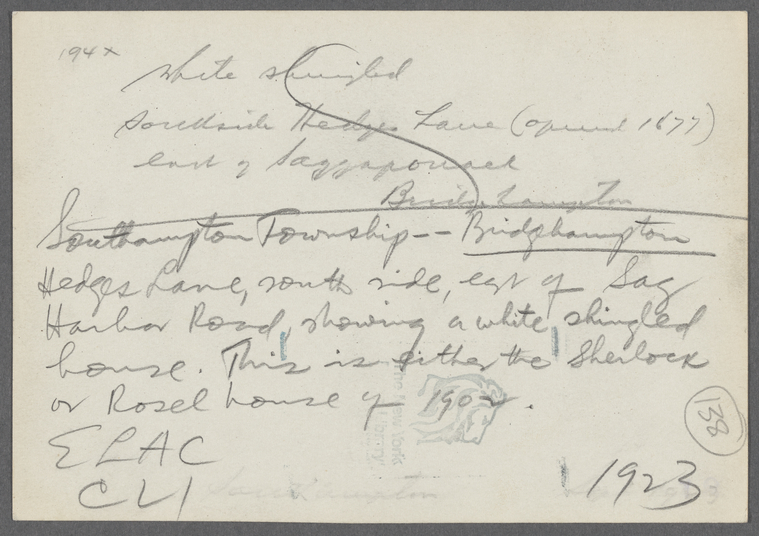 194x
white shingled
Southside Hedges Lane (opened 1677)
east of Saggaponack
Bridgehampton
Southampton Township -- Bridgehampton
Hedges Lane, south side, east of Sag
Harbor Road, showing a white shingled
house. This is either the Sherlock
or Rosel house of 1902.
138
ELAC
CLI
1923
Southampton
The New York
Library